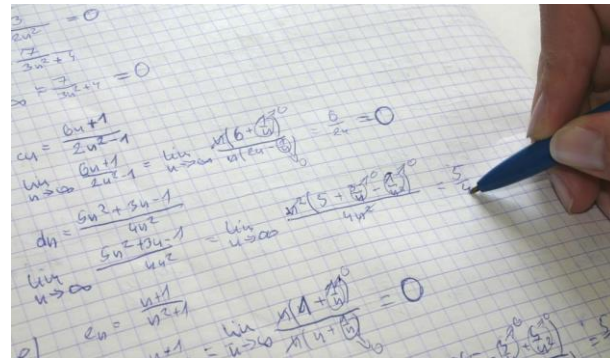 3/2n² = 0
7/3n²+4
∞ = 7/3n²+4 = 0
cn = 6n+1/2n²-1
lim n→∞ 6n+1/2n²-1 = lim n→∞ n(6+1/n)→0/n(2n-1/n)→0 = 6/2n = 0
dn = 5n²+3n-1/4n²
lim n→∞ 5n²+3n-1/4n² = lim n→∞ n²(5+3/n→0-1/n²→0)/4n² = 5/4
en = n+1/n²+1
n+1 = lim n→∞ n(1+1/n)→0/n(n+1/n)→0 = 0